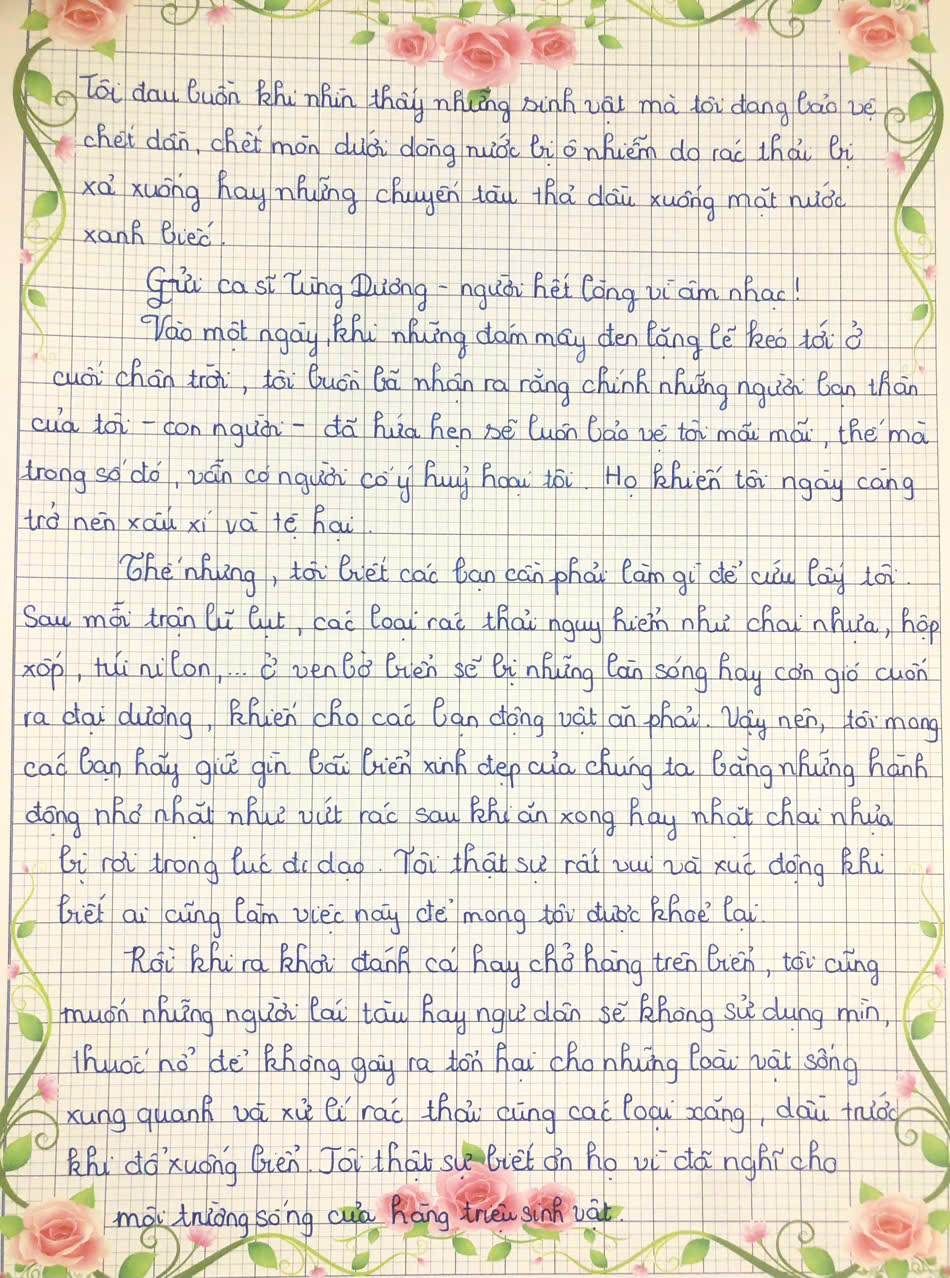 Tôi đau buồn khi nhìn thấy những sinh vật mà tôi đang bảo vệ
chết dần, chết mòn dưới dòng nước bị ô nhiễm do rác thải bị
xả xuống hay những chuyến tàu thả dầu xuống mặt nước
xanh biếc.
Gửi ca sĩ Tùng Dương - người hết lòng vì âm nhạc!
Vào một ngày, khi những đám mây đen lặng lẽ kéo tới ở
cuối chân trời, tôi buồn bã nhận ra rằng chính những người bạn thân
của tôi - con người - đã hứa hẹn sẽ luôn bảo vệ tôi mãi mãi, thế mà
trong số đó, vẫn có người cố ý huỷ hoại tôi. Họ khiến tôi ngày càng
trở nên xấu xí và tệ hại.
Thế nhưng, tôi biết các bạn cần phải làm gì để cứu lấy tôi.
Sau mỗi trận lũ lụt, các loại rác thải nguy hiểm như chai nhựa, hộp
xốp, túi ni lon,... ở ven bờ biển sẽ bị những làn sóng hay cơn gió cuốn
ra đại dương, khiến cho các bạn động vật ăn phải. Vậy nên, tôi mong
các bạn hãy giữ gìn bãi biển xinh đẹp của chúng ta bằng những hành
động nhỏ nhặt như vứt rác sau khi ăn xong hay nhặt chai nhựa
bị rơi trong lúc đi dạo. Tôi thật sự rất vui và xúc động khi
biết ai cũng làm việc này để mong tôi được khoẻ lại.
Rồi khi ra khơi đánh cá hay chở hàng trên biển, tôi cũng
muốn những người lái tàu hay ngư dân sẽ không sử dụng mìn,
thuốc nổ để không gây ra tổn hại cho những loài vật sống
xung quanh và xử lí rác thải cùng các loại xăng, dầu trước
khi đổ xuống biển. Tôi thật sự biết ơn họ vì đã nghĩ cho
môi trường sống của hàng triệu sinh vật.